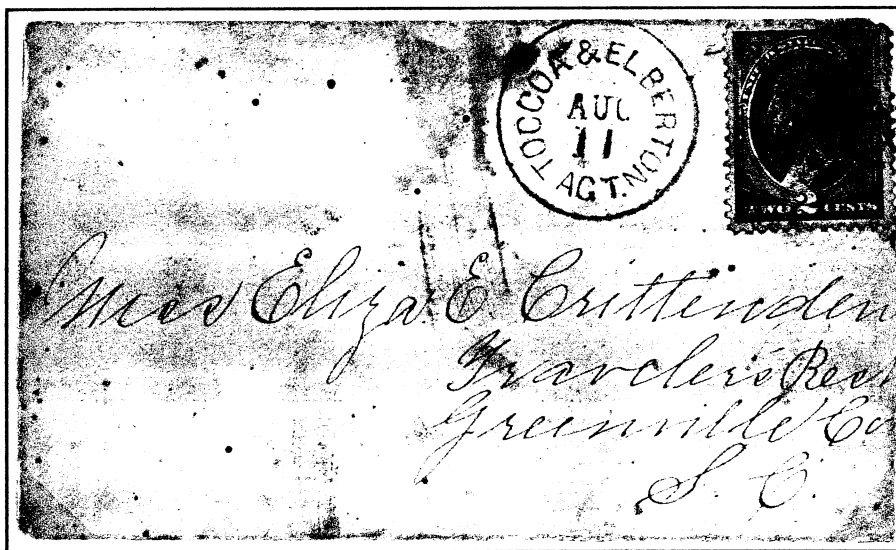 TOCCOA & ELBERTON
AUG
11
AGT.
TWO 2 CENTS
Miss Eliza E. Crittenden
Travelers Rest
Greenville Co
S. C.